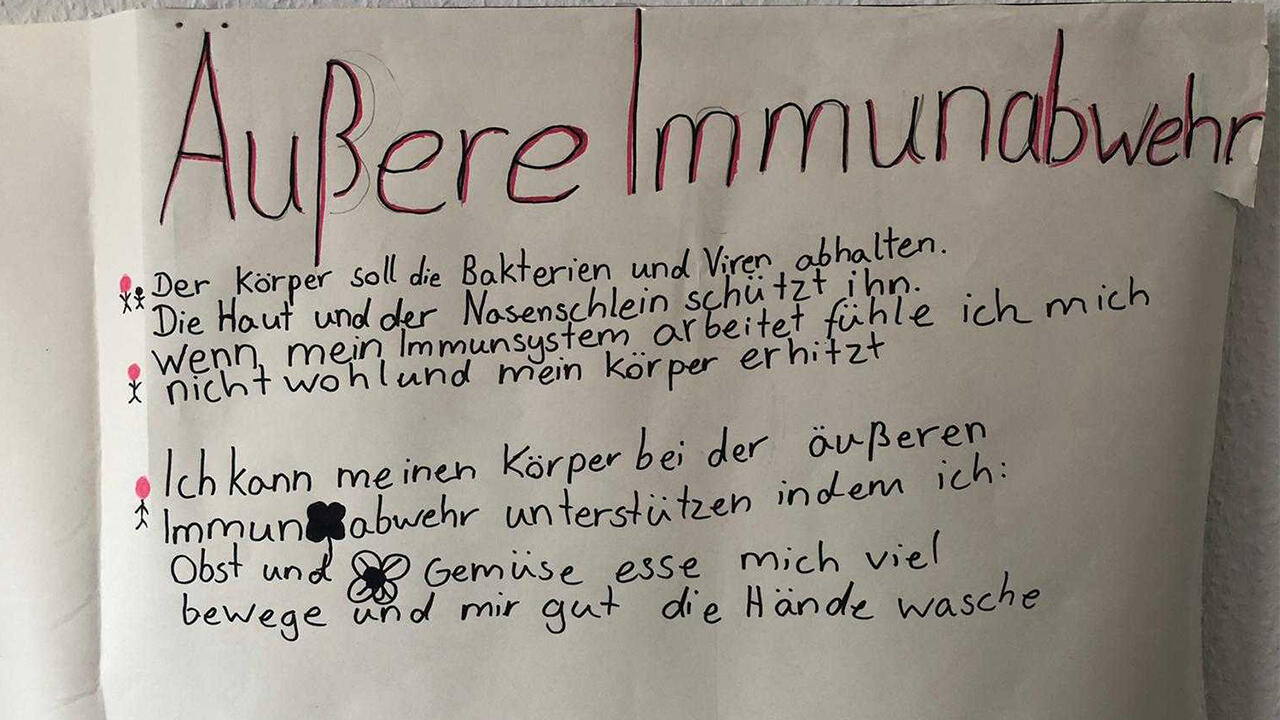 Äußere Immunabwehr
Der Körper soll die Bakterien und Viren abhalten.
Die Haut und der Nasenschlein schützt ihn.
wenn mein Immunsystem arbeitet fühle ich mich
nicht wohl und mein Körper erhitzt
Ich kann meinen Körper bei der äußeren
Immun abwehr unterstützen indem ich:
Obst und Gemüse esse mich viel
bewege und mir gut die Hände wasche